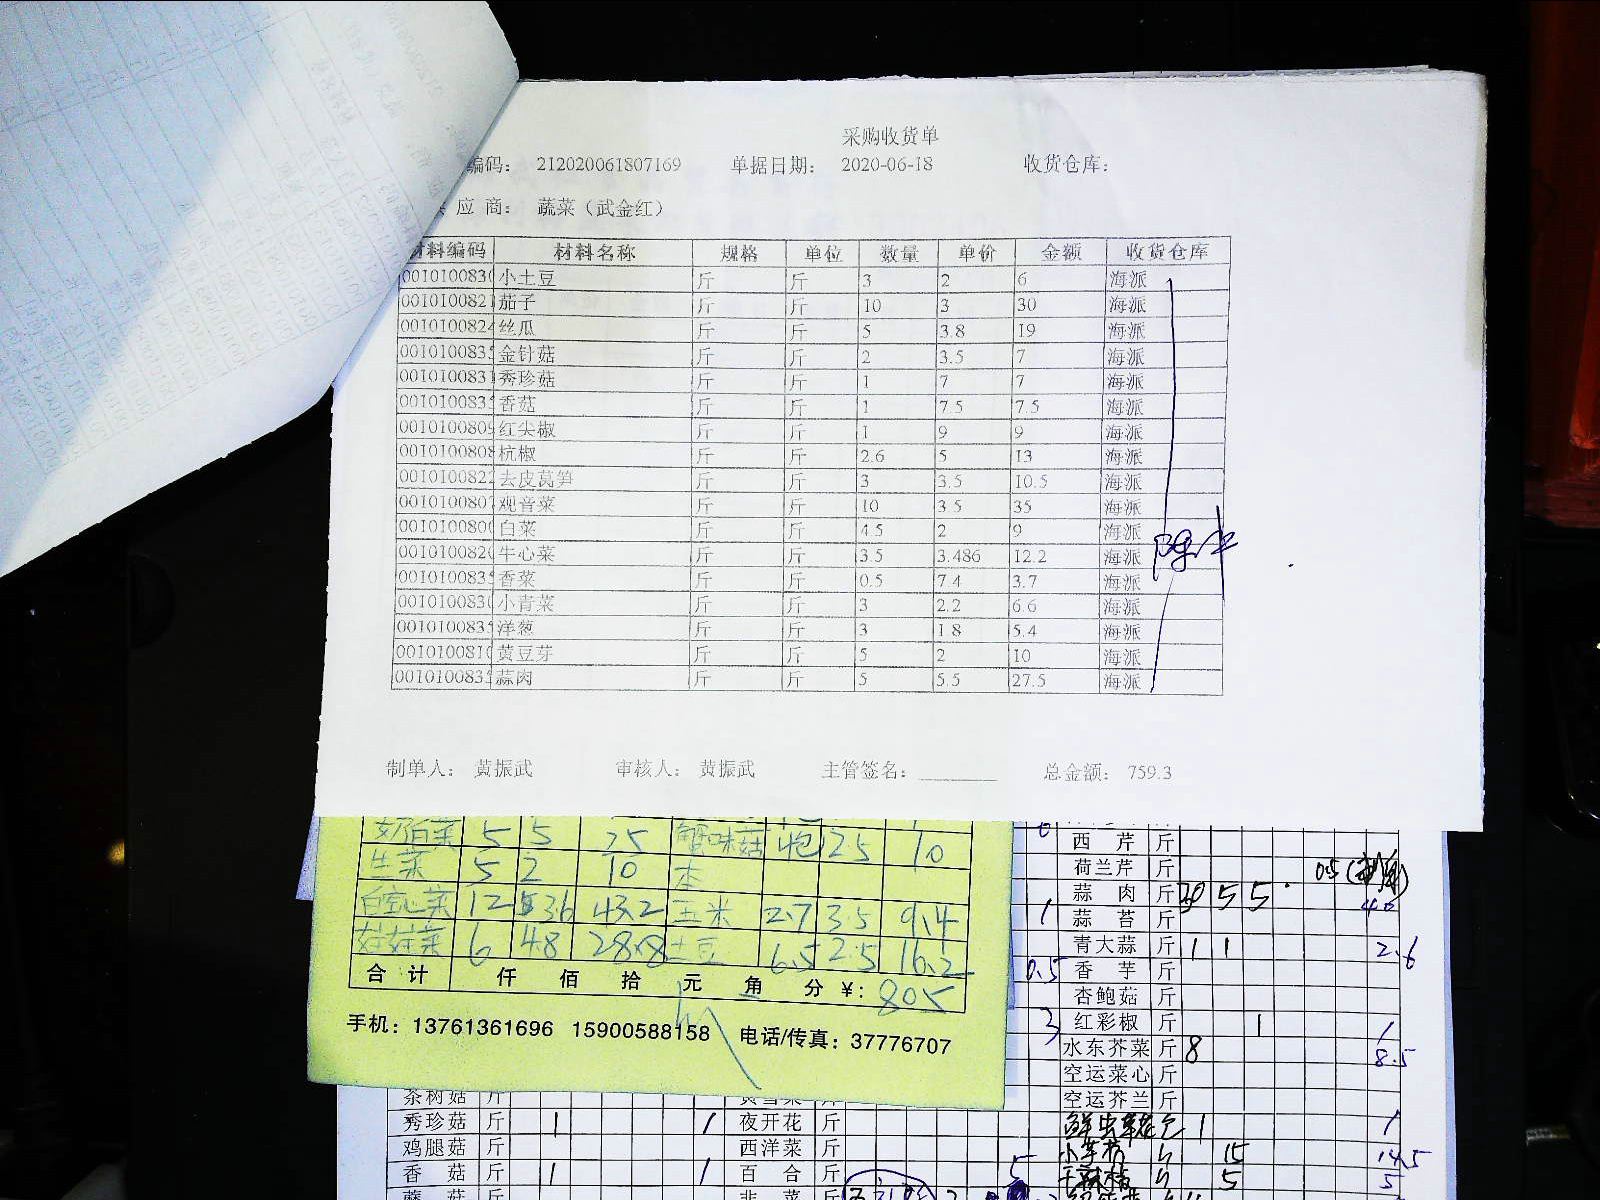 采购收货单
编码： 212020061807169 单据日期： 2020-06-18 收货仓库：
应 商： 蔬菜（武金红）
材料编码 材料名称 规格 单位 数量 单价 金额 收货仓库
001010083 小土豆 斤 斤 3 2 6 海派
001010082 茄子 斤 斤 10 3 30 海派
001010082 丝瓜 斤 斤 5 3.8 19 海派
001010083 金针菇 斤 斤 2 3.5 7 海派
001010083 秀珍菇 斤 斤 1 7 7 海派
001010083 香菇 斤 斤 1 7.5 7.5 海派
001010080 红尖椒 斤 斤 1 9 9 海派
001010080 杭椒 斤 斤 2.6 5 13 海派
001010082 去皮莴笋 斤 斤 3 3.5 10.5 海派
001010080 观音菜 斤 斤 10 3.5 35 海派
001010080 白菜 斤 斤 4.5 2 9 海派
001010082 牛心菜 斤 斤 3.5 3.486 12.2 海派
001010083 香菜 斤 斤 0.5 7.4 3.7 海派
001010083 小青菜 斤 斤 3 2.2 6.6 海派
001010083 洋葱 斤 斤 3 1.8 5.4 海派
001010081 黄豆芽 斤 斤 5 2 10 海派
001010083 蒜肉 斤 斤 5 5.5 27.5 海派
制单人： 黄振武 审核人： 黄振武 主管签名： 总金额： 759.3
奶白菜 5 5 25 蟹味菇 4包 2.5 10
生菜 5 2 10 本
白空心菜 12 3.6 43.2 玉米 2.7 3.5 9.4
娃娃菜 6 4.8 28.8 土豆 6.5 2.5 16.2
合计 仟 佰 拾 元 角 分 ¥: 805
手机：13761361696 15900588158 电话/传真：37776707
西 芹 斤
荷兰芹 斤 0.5
蒜 肉 斤 5 5
1 蒜 苔 斤
青大蒜 斤 1 1 2.6
0.5 香 芋 斤
杏鲍菇 斤
3 红彩椒 斤 1 1
水东芥菜 斤 8 8.5
空运菜心 斤
空运芥兰 斤
茶树菇 斤
秀珍菇 斤 1 1 夜开花 斤 1 1
鸡腿菇 斤 西洋菜 斤 15 14.5
香 菇 斤 1 1 百 合 斤 5 5 5